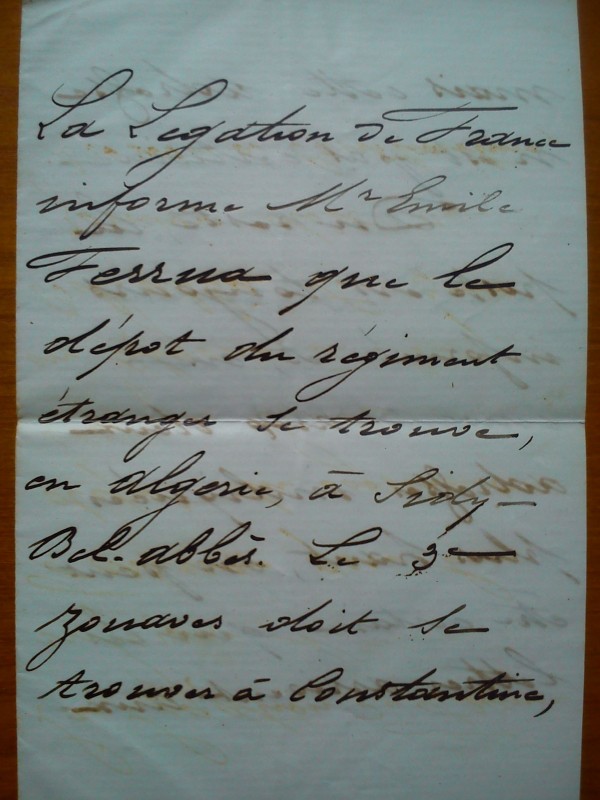 La Légation de France
informe Mr Emile
Ferrua que le
dépot du régiment
étranger se trouve,
en algérie, à Sidy-
Bel-abbès. Le 3e
zouaves doit se
trouver à Constantine,